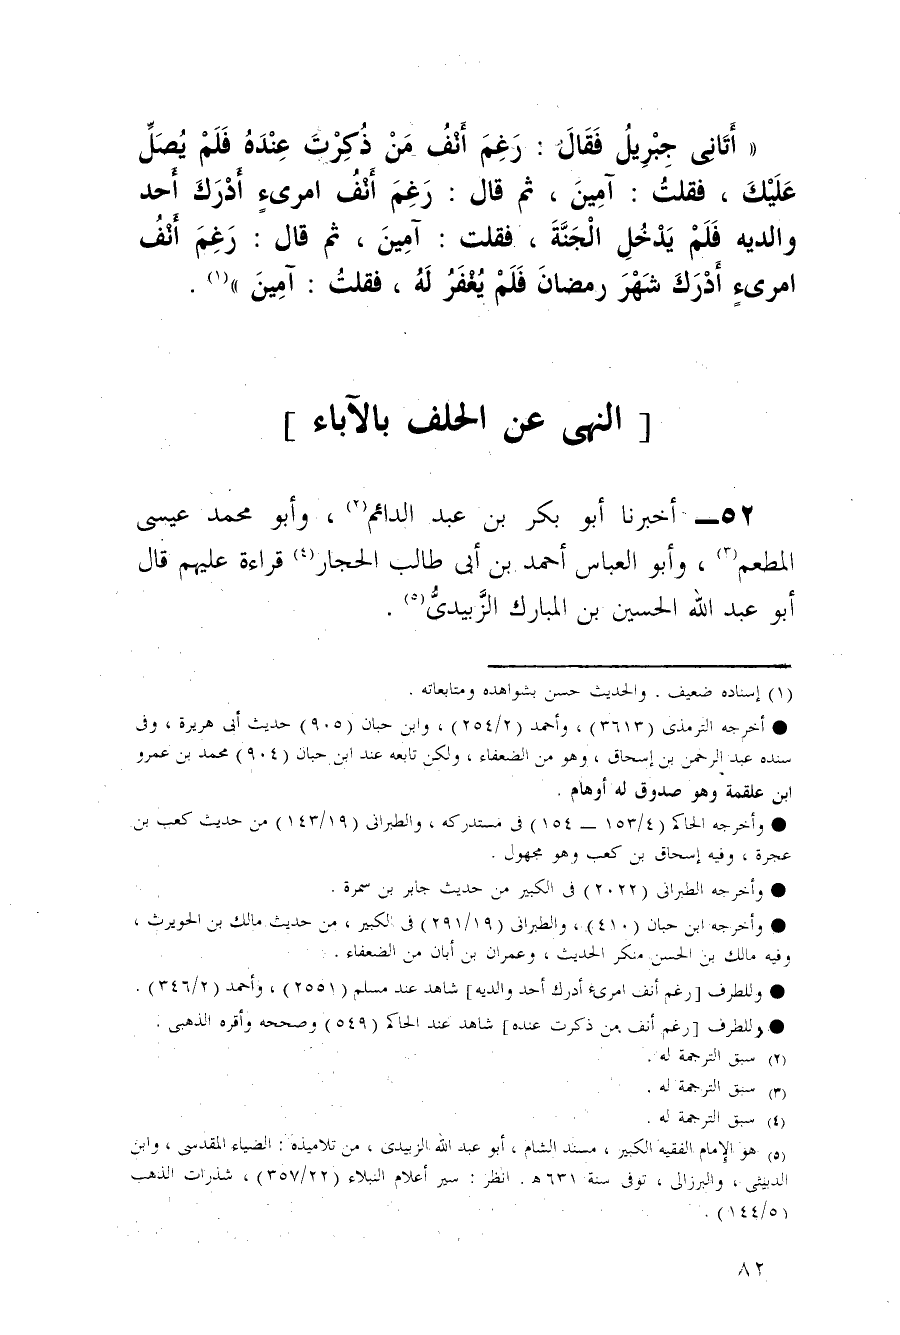 « أَتَانِى جِبْرِيلُ فَقَالَ : رَغِمَ أَنْفُ مَنْ ذُكِرْتَ عِنْدَهُ فَلَمْ يُصَلِّ
عَلَيْكَ ، فقلتُ : آمِينَ ، ثم قال : رَغِمَ أَنْفُ امرىءٍ أَدْرَكَ أَحد
والديه فَلَمْ يَدْخُلِ الْجَنَّةَ ، فقلت : آمِينَ ، ثم قال : رَغِمَ أَنْفُ
امرىءٍ أَدْرَكَ شَهْرَ رمضانَ فَلَمْ يُغْفَرُ لَهُ ، فقلتُ : آمِينَ »(١) .
[ النهى عن الحلف بالآباء ]
٥٢ــ أخبرنا أبو بكر بن عبد الدائم(٢) ، وأبو محمد عيسى
المطعم(٣) ، وأبو العباس أحمد بن أبى طالب الحجار(٤) قراءة عليهم قال
أبو عبد الله الحسين بن المبارك الزَّبيدىُّ(٥) .
(١) إسناده ضعيف . والحديث حسن بشواهده ومتابعاته .
● أخرجه الترمذى (٣٦١٣) ، وأحمد (٢٥٤/٢) ، وابن حبان (٩٠٥) حديث أبى هريرة ، وفى
سنده عبد الرحمن بن إسحاق ، وهو من الضعفاء ، ولكن تابعه عند ابن حبان (٩٠٤) محمد بن عمرو
ابن علقمة وهو صدوق له أوهام .
● وأخرجه الحاكم (١٥٣/٤ ــ ١٥٤) فى مستدركه ، والطبرانى (١٤٣/١٩) من حديث كعب بن
عجرة ، وفيه إسحاق بن كعب وهو مجهول .
● وأخرجه الطبرانى (٢٠٢٢) فى الكبير من حديث جابر بن سمرة .
● وأخرجه ابن حبان (٤١٠) ، والطبرانى (٢٩١/١٩) فى الكبير ، من حديث مالك بن الحويرث ،
وفيه مالك بن الحسن منكر الحديث ، وعمران بن أبان من الضعفاء .
● وللطرف [رغم أنف امرىء أدرك أحد والديه] شاهد عند مسلم (٢٥٥١) ، وأحمد (٣٤٦/٢) .
● وللطرف [رغم أنف من ذكرت عنده] شاهد عند الحاكم (٥٤٩) وصححه وأقره الذهبى .
(٢) سبق الترجمة له .
(٣) سبق الترجمة له .
(٤) سبق الترجمة له .
(٥) هو الإمام الفقيه الكبير ، مسند الشام ، أبو عبد الله الزبيدى ، من تلاميذه : الضياء المقدسى ، وابن
الدبيثى ، والبرزالى ، توفى سنة ٦٣١ هـ . انظر : سير أعلام النبلاء (٣٥٧/٢٢) ، شذرات الذهب
(١٤٤/٥) .
٨٢